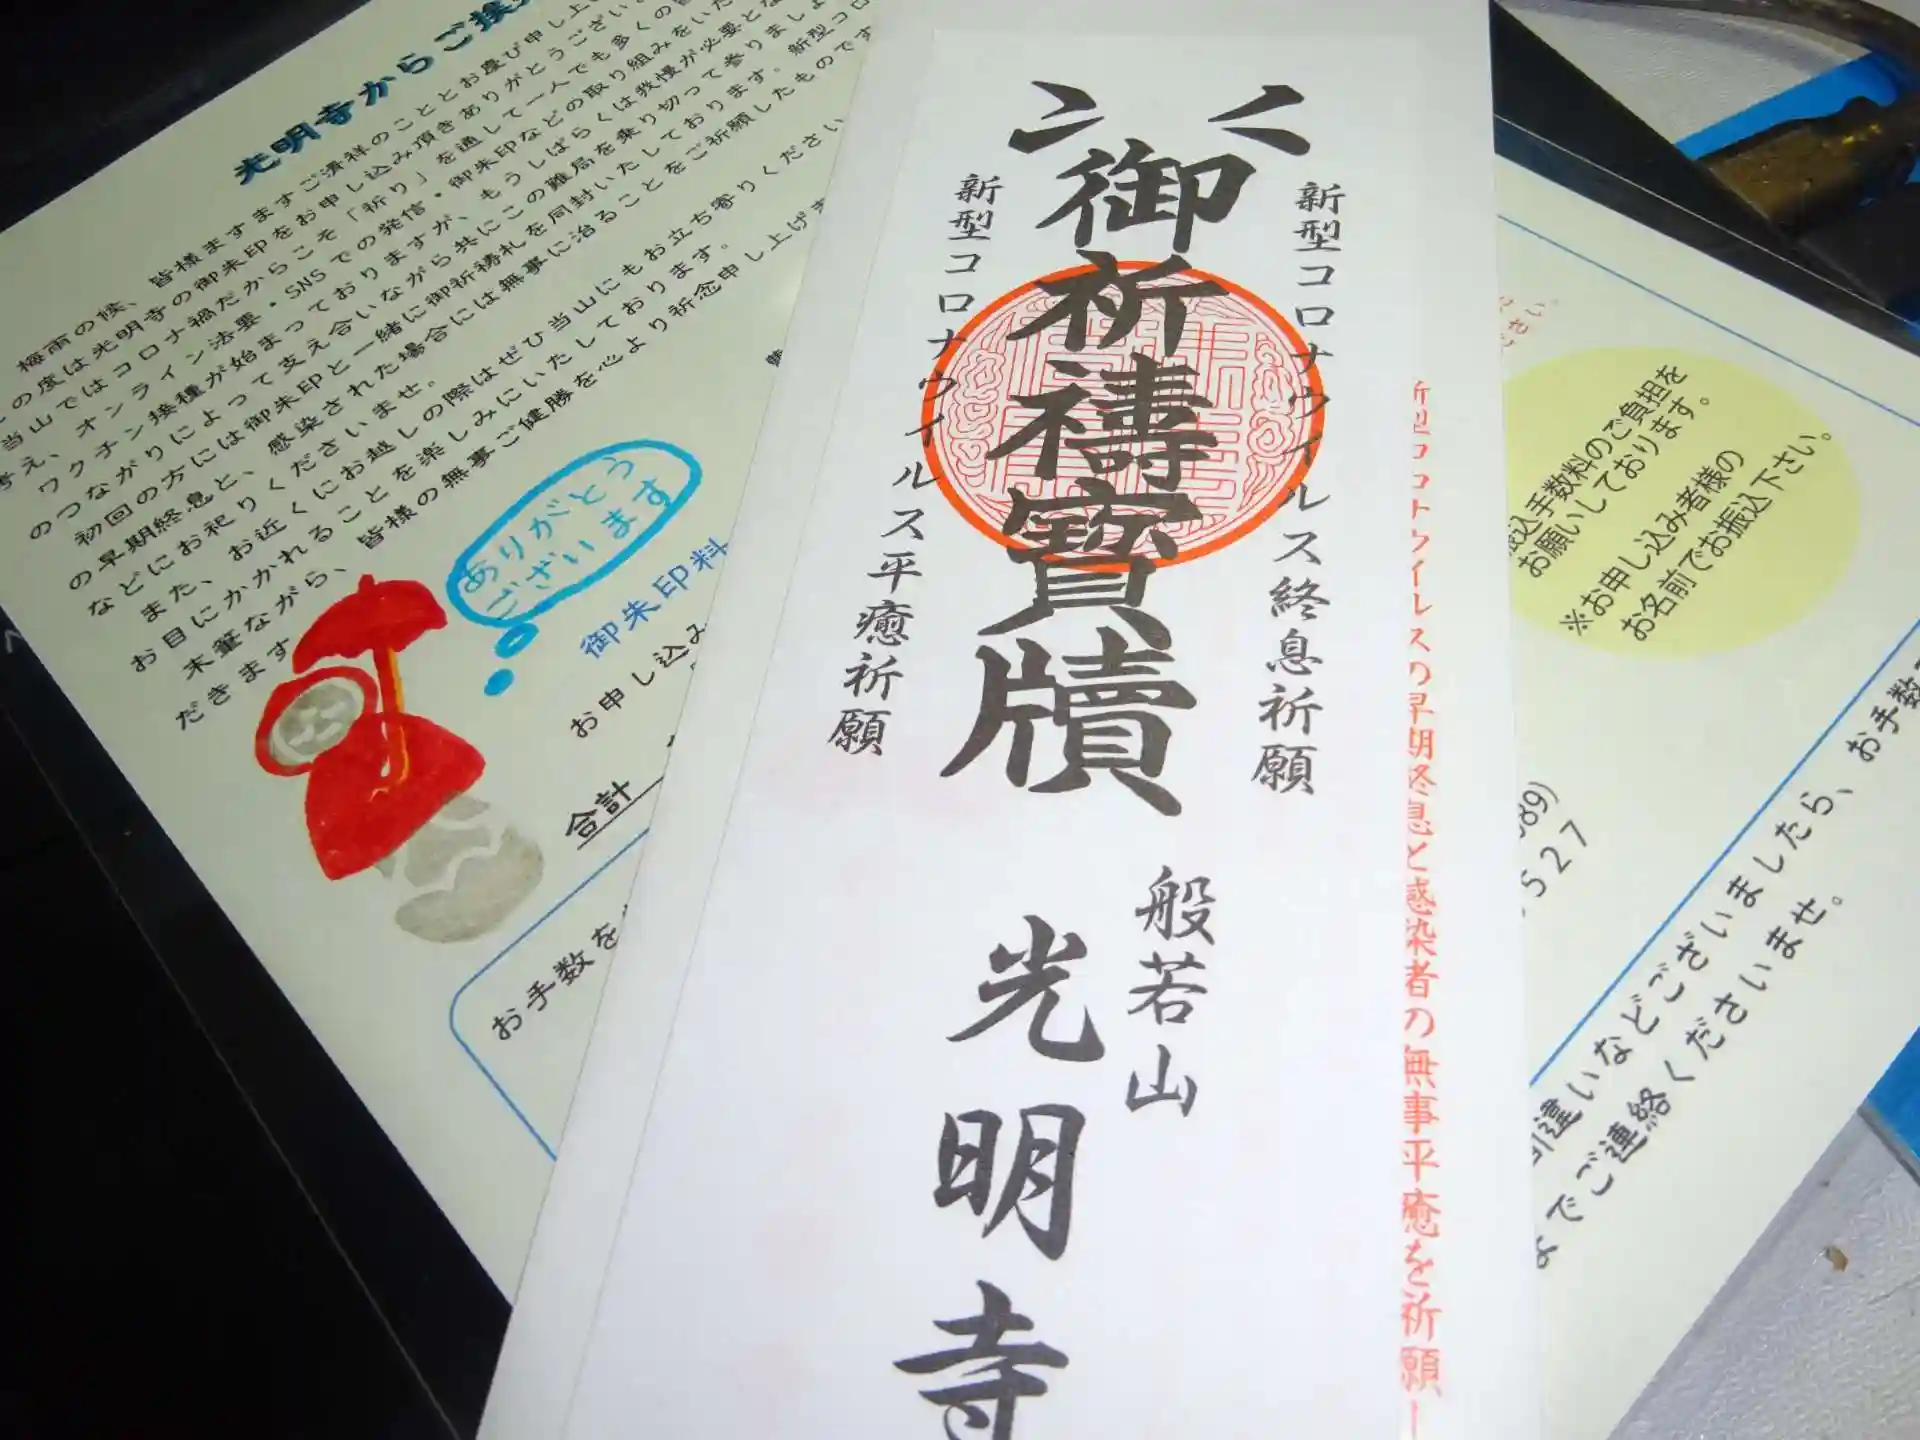 光明寺からご挨
梅雨の候、皆様ますますご清祥のこととお慶び申し上
の度は光明寺の御朱印をお申し込み頂きありがとうござい
当山ではコロナ禍だからこそ「祈り」を通して一人でも多くの
考え、オンライン法要・SNSでの発信・御朱印などの取り組みをいた
ワクチン接種が始まっておりますが、もうしばらくは我慢が必要とな
のつながりによって支え合いながら共にこの難局を乗り切って参りましょ
初回の方には御朱印と一緒に御祈祷札を同封いたしております。新型コロ
の早期終息と、感染された場合には無事に治ることをご祈願したものです
などにお祀りくださいませ。
また、お近くにお越しの際はぜひ当山にもお立ち寄りください
お目にかかれることを楽しみにいたしております。
末筆ながら、皆様の無事ご健勝を心より祈念申し上げま
だきます
ありがとう
ございます
御朱印料
お申し込み
合計
お手数を
新型コロナウイルス終息祈願
御祈禱寶牘
新型コロナウイルス平癒祈願
般若山
光明寺
新型コロナウイルスの早期終息と感染者の無事平癒を祈願
振込手数料のご負担を
お願いしております。
※お申し込み者様の
お名前でお振込下さい。
89)
527
違いなどございましたら、お手数
までご連絡くださいませ。